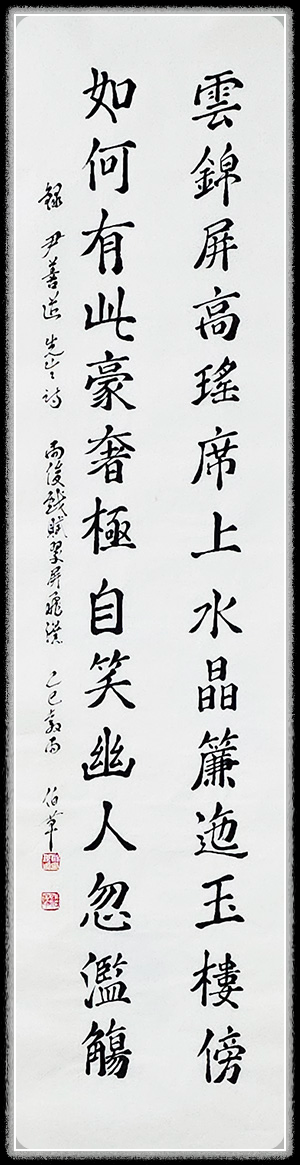 雲錦屏高瑤席上水晶簾迤玉樓傍
如何有此豪奢極自笑幽人忽濫觴
錄 尹善道 先生詩 雨後戲賦翠屏飛瀑 乙巳 伯草